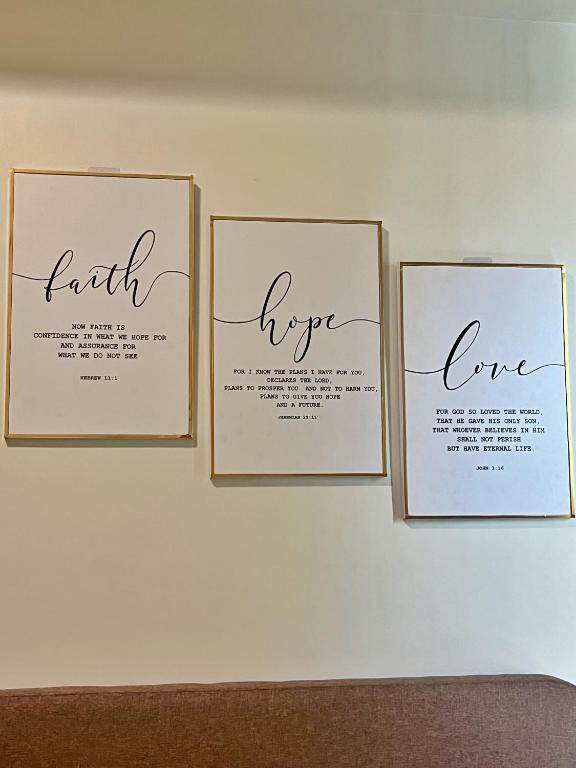 faith
NOW FAITH IS
CONFIDENCE IN WHAT WE HOPE FOR
AND ASSURANCE FOR
WHAT WE DO NOT SEE
HEBREW 11:1
hope
FOR I KNOW THE PLANS I HAVE FOR YOU,
DECLARES THE LORD,
PLANS TO PROSPER YOU AND NOT TO HARM YOU,
PLANS TO GIVE YOU HOPE
AND A FUTURE.
JEREMIAH 29:11
love
FOR GOD SO LOVED THE WORLD,
THAT HE GAVE HIS ONLY SON,
THAT WHOEVER BELIEVES IN HIM
SHALL NOT PERISH
BUT HAVE ETERNAL LIFE.
JOHN 3:16